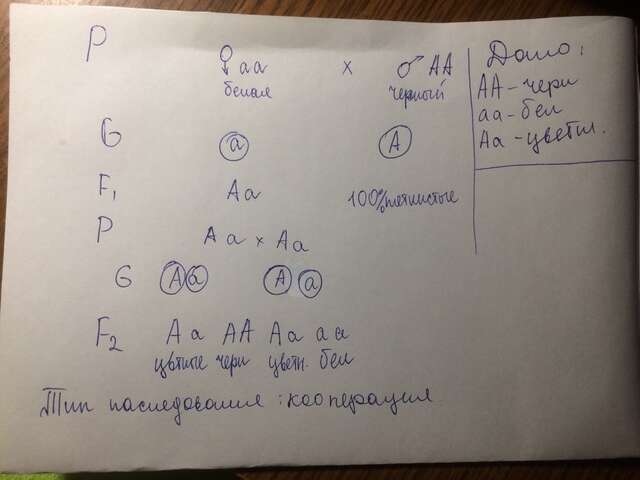 P ♀ aa x ♂ AA
белая черный
G a A
F₁ Aa 100% пятнистые
P Aa x Aa
G A a A a
F₂ Aa AA Aa aa
цветные черн цветн. бел
Тип наследования: кооперация
Дано:
AA - черн
aa - бел
Aa - цветн.